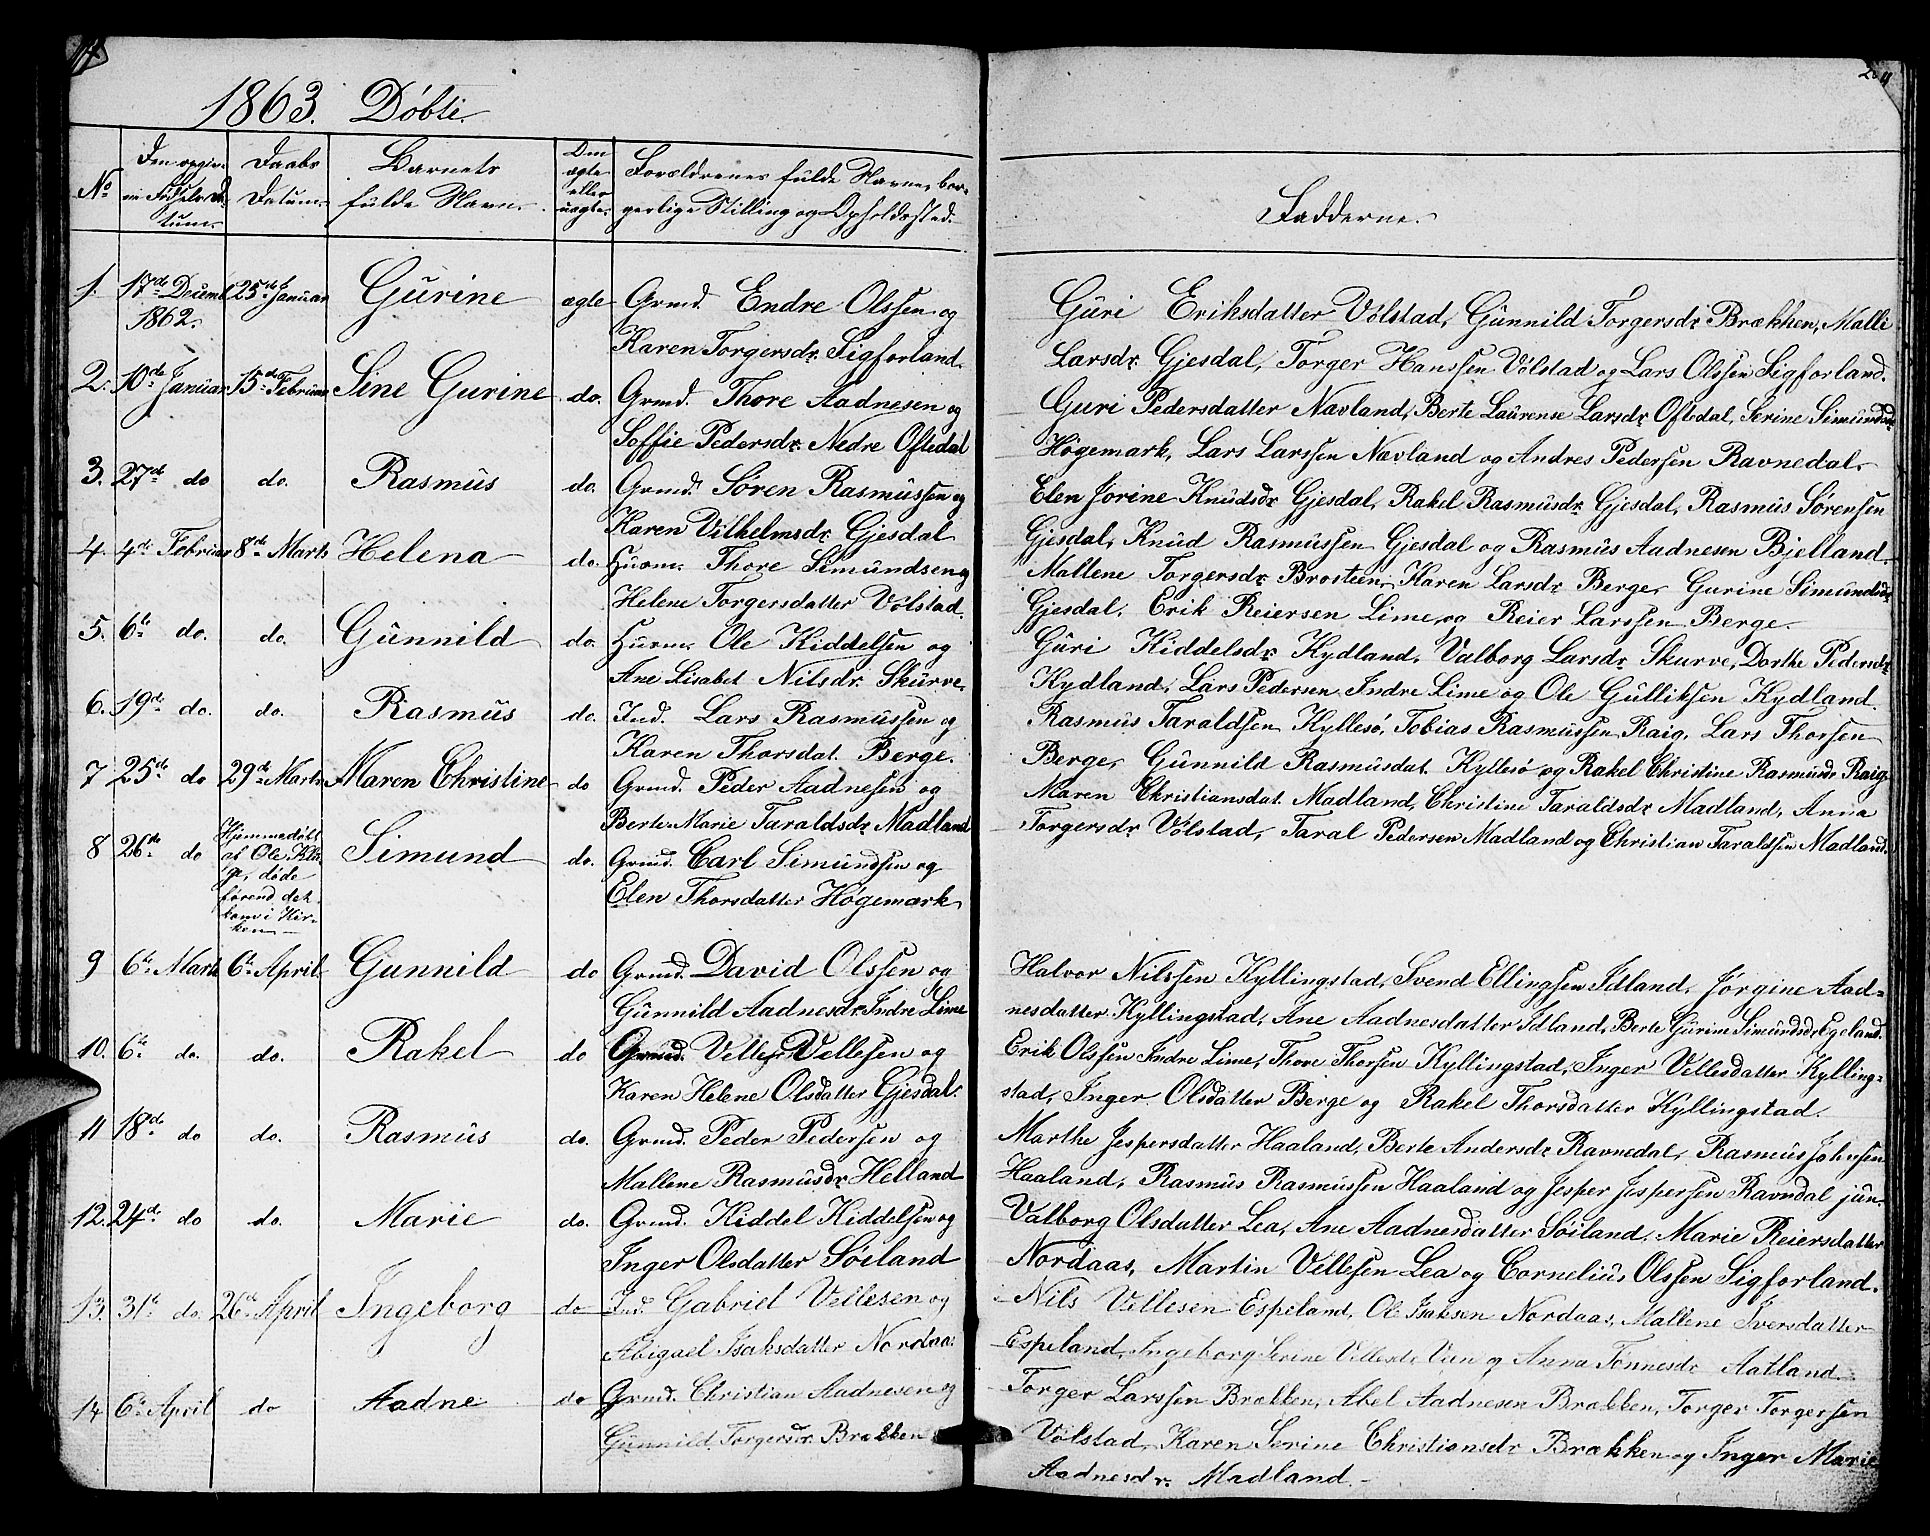 1863. Döbte.
No
Den opgivne Fødsels Datum.
Daabs Datum.
Barnets fulde Navn.
Om ægte eller uægte.
Forældrenes fulde Navne, borgerlige Stilling og Opholdssted.
Fadderne.
1. 17de Decembr 25de Januar Gurine ægte Grmd. Endre Olssen og
1862. Karen Torgersdr. Sigforland.
Guri Eriksdatter Volstad, Gunnild Torgersdr Brækken, Malli
Larsdr. Gjesdal, Torger Hanssen Volstad og Lars Olssen Sigforland.
2. 10de Januar 15de Februar Sine Gurine do. Grmd. Thore Aadnesen og
Soffie Pedersdr. Nedre Oftedal
Guri Pedersdatter Nævland, Berte Laurense Larsdr Oftedal, Serine Simundsdr
Högemark, Lars Larssen Nævland og Andres Pedersen Ravnedal.
3. 27de do do. Rasmus do. Grmd. Søren Rasmussen og
Karen Vilhelmsdr. Gjesdal
Elen Jorine Knudsdr Gjesdal, Rakel Rasmusdr. Gjesdal, Rasmus Sörensen
Gjesdal, Knud Rasmussen Gjesdal og Rasmus Aadnesen Bjelland.
4. 4de Februar 8de Marts Helena do. Husm. Thore Simundsen og
Helene Torgersdatter Volstad.
Mallene Torgersdr Brosteen, Karen Larsdr Berge, Gurine Simundsdr
Gjesdal, Erik Reiersen Lime, og Reier Larssen Berge.
5. 6te do. do. Gunnild do. Husm. Ole Kiddelsen og
Ane Lisabet Nilsdr. Skurve.
Guri Kiddelsdr. Kydland, Valborg Larsdr Skurve, Dorthe Pedersdr
Kydland, Lars Pedersen Indre Lime og Ole Gulliksen Kydland.
6. 19de do. do. Rasmus do. Ind. Lars Rasmussen og
Karen Thorsdat. Berge.
Rasmus Taraldsen Kyllesö, Tobias Rasmussen Raig, Lars Thorsen
Berge, Gunnild Rasmusdat. Kyllesö og Rakel Christine Rasmusdr Raig.
7 25de do 29de Marts Maren Christine do Grmd. Peder Aadnesen og
Berte Marie Taraldsdr. Madland
Maren Christiansdat. Madland, Christine Taraldsdr Madland, Anna
Torgersdr Volstad, Taral Pedersen Madland og Christian Taraldsen Madland.
8 26de do Hjemmedöbt af Ole døde førend det kom i Kirken Simund do. Grmd. Carl Simundsen og
Elen Thorsdatter Høgemark
9 6te Marts 6te April Gunnild do Grmd. David Olssen og
Gunnild Aadnesdr. Indre Lime
Halvor Nilssen Kyllingstad, Svend Ellingsen Idland, Jørgine Aad=
nesdatter Kyllingstad, Ane Aadnesdatter Idland, Berte Gurine Simundsdr Egeland.
10. 6te do. do. Rakel do Grmd. Velles Vellesen og
Karen Helene Olsdatter Gjesdal.
Erik Olssen Indre Lime, Thore Thorsen Kyllingstad, Inger Vellesdatter Kylling=
stad, Inger Olsdatter Berge og Rakel Thorsdatter Kyllingstad.
11 18de do do. Rasmus do. Grmd. Peder Pedersen og
Mallene Rasmusdr Helland
Marthe Jespersdatter Haaland, Berte Andersdr Ravnedal, Rasmus Johnsen
Haaland, Rasmus Rasmussen Haaland og Jesper Jespersen Ravndal jun.
12. 24de do do. Marie do. Grmd. Kiddel Kiddelsen og
Inger Olsdatter Søiland
Valborg Olsdatter Lea, Ane Aadnesdatter Söiland, Marie Reiersdatter
Nordaas, Martin Vellesen Lea og Cornelius Olssen Sigforland.
13. 31te do. 26de April Ingeborg do Ind. Gabriel Vellesen og
Abigael Isaksdatter Nordaas
Nils Vellesen Espeland, Ole Isaksen Nordaas, Mallene Iversdatter
Espeland, Ingeborg Serine Vellesdr og Anna Tonnesdr Aatland.
14 6te April do Aadne do Grmd. Christian Aadnesen og
Gunnild Torgersdr. Brækken
Torger Larssen Brækken, Abel Aadnesen Brækken, Torger Torgersen
Volstad, Karen Serine Christiansdr Brækken og Inger Marie
Aadnesdr. Madland.